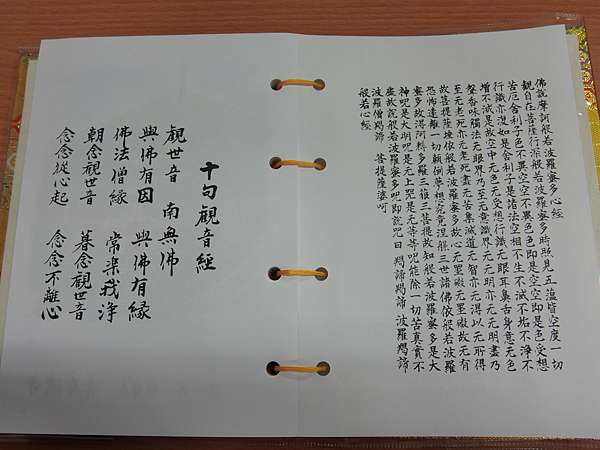 佛說摩訶般若波羅蜜多心經
觀自在菩薩行深般若波羅蜜多時照見五蘊皆空度一切
苦厄舍利子色不異空空不異色色即是空空即是色受想
行識亦復如是舍利子是諸法空相不生不滅不垢不淨不
增不減是故空中无色无受想行識无眼耳鼻舌身意无色
聲香味觸法无眼界乃至无意識界无无明亦无无明盡乃
至无老死亦无老死盡无苦集滅道无智亦无得以无所得
故菩提薩埵依般若波羅蜜多故心无罣礙无罣礙故无有
恐怖遠離一切顛倒夢想究竟涅槃三世諸佛依般若波羅
蜜多故得阿耨多羅三藐三菩提故知般若波羅蜜多是大
神呪是大明呪是无上呪是无等等呪能除一切苦真實不
虛故說般若波羅蜜多呪即說呪曰 羯諦羯諦 波羅羯諦
波羅僧羯諦 菩提薩婆呵
般若心經
十句觀音經
觀世音 南無佛
與佛有因 與佛有緣
佛法僧緣 常樂我淨
朝念觀世音 暮念觀世音
念念從心起 念念不離心